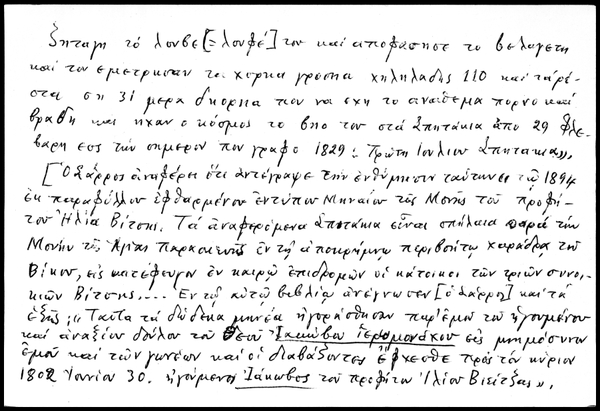 ζηταγη τὸ λουβε [= λουφέ] του και αποφασησε το βελαγετη
και τον εμετρησαν τα χορηα γροσηα χηληαδες 110 και τα ρέ-
στα ση 31 μερα διορηα που να εχη το αναθεμα πορνο και
βραδη και ηχαν ο κόσμος το βηο του στα Σπητάκια απο 29 φλε-
βαρη εος την σημερον που γραφο 1829: Πρώτη Ιουλιου Σπητακια»,
[Ὁ Σάρρος ἀναφέρει ὅτι ἀντέγραψε τὴν ἐνθύμησιν ταύτην τῷ 1894
ἐκ παραφύλλου ἐφθαρμένου ἐντύπου Μηναίου τῆς Μονῆς τοῦ προφή-
του Ἠλία Βίτσης. Τὰ ἀναφερόμενα Σπιτάκια εἶναι σπήλαια παρὰ τὴν
Μονὴν τῆς Ἁγίας Παρασκευῆς ἐν τῇ ἀποκρήμνῳ περιβοήτῳ χαράδρᾳ τοῦ
Βίκου, εἰς κατέφευγον ἐν καιρῷ ἐπιδρομῶν οἱ κάτοικοι τῶν τριῶν συνοι-
κιῶν Βίτσης.... Ἐν τῷ αὐτῷ βιβλίῳ ἀνέγνωσεν [ὁ Σάρρος] καὶ τὰ
ἑξῆς: «Ταῦτα τὰ δώδεκα μηνέα ἠγοράσθησαν παρ' ἐμοῦ τοῦ ἡγουμένου
καὶ ἀναξίου δούλου τοῦ Θεοῦ Ἰακώβου ἱερομονάχου εἰς μνημόσυνον
ἐμοῦ καὶ τῶν γονέων καὶ οἱ διαβάζοντες εὔχεσθε πρὸς τὸν κύριον
1802 Ἰουνίου 30. ἡγούμενος Ἰάκωβος τοῦ προφήτου Ἠλίου Βιείτζας»,